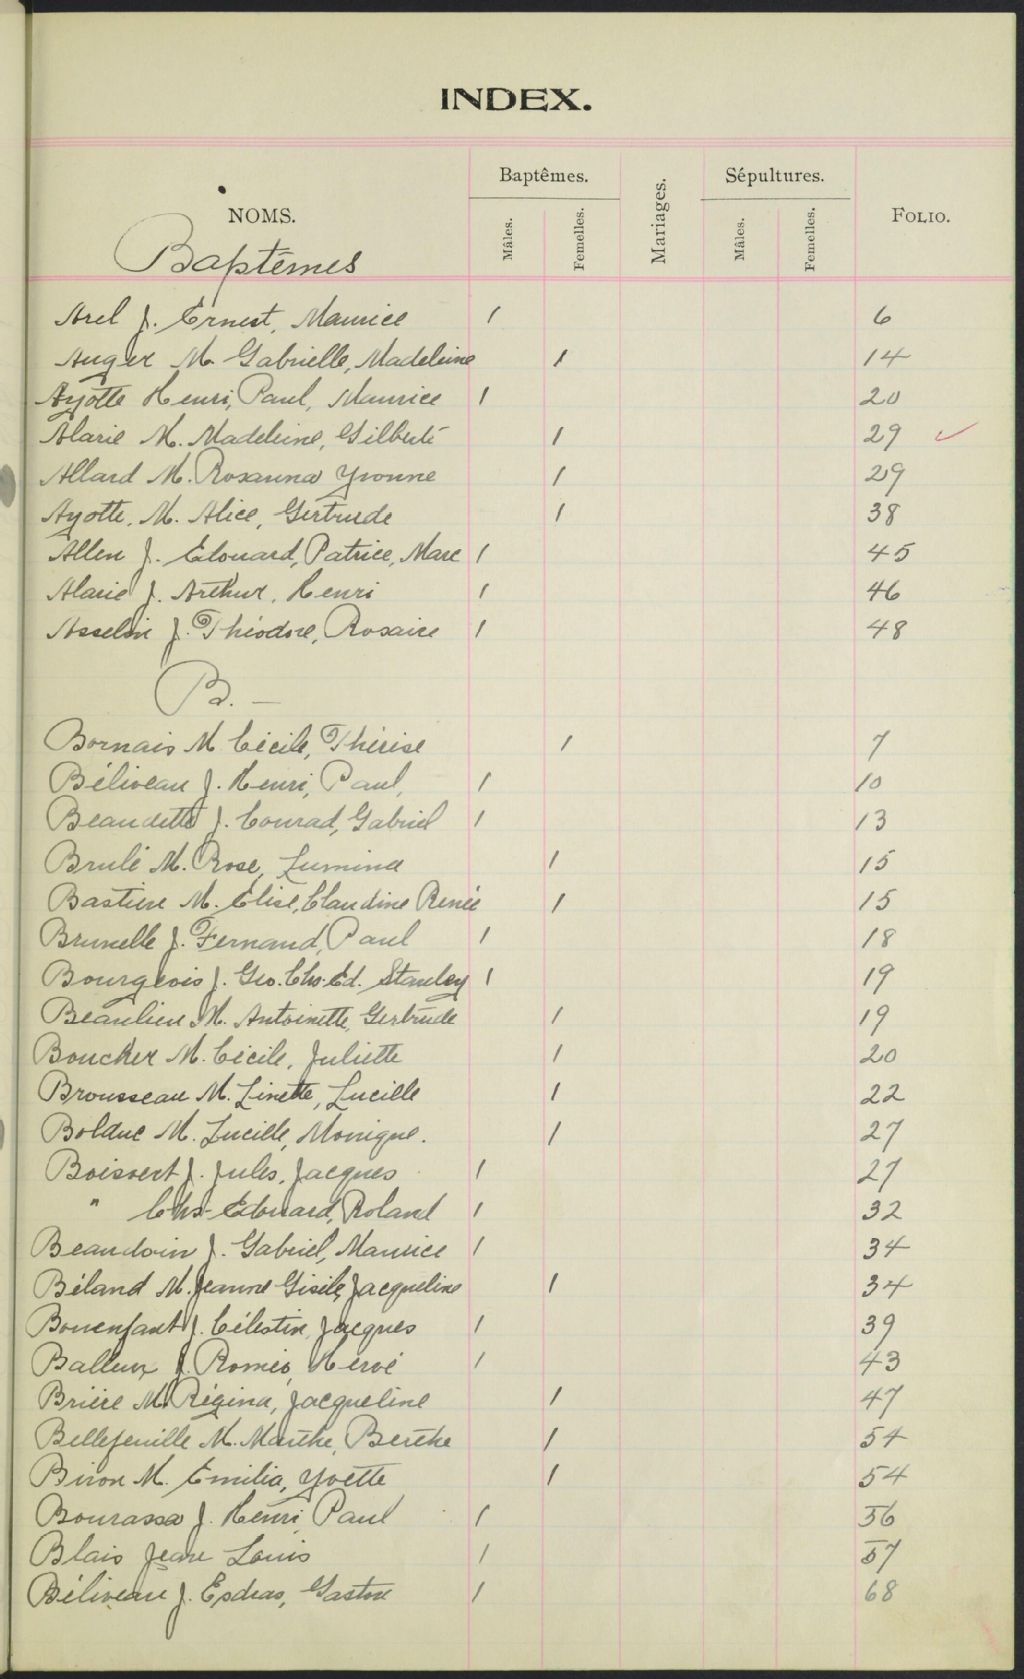 INDEX.
NOMS. Baptêmes. Mâles. Femelles. Mariages. Sépultures. Mâles. Femelles. FOLIO.
Baptêmes
Arel J. Ernest, Maurice 1 6
Auger M. Gabrielle, Madeleine 1 14
Ayotte Henri, Paul, Maurice 1 20
Alarie M. Madeleine, Gilberte 1 29 ✓
Allard M. Rosanna Yvonne 1 29
Ayotte, M. Alice, Gertrude 1 38
Allen J. Edouard, Patrice, Marc 1 45
Alarie J. Arthur, Henri 1 46
Asselin J. Théodore, Rosaire 1 48
B. —
Bornais M. Cécile, Thérèse 1 7
Béliveau J. Henri, Paul, 1 10
Beaudette J. Conrad, Gabriel 1 13
Brulé M. Rose, Lumina 1 15
Bastien M. Elise, Claudine Renée 1 15
Brunelle J. Fernand, Paul 1 18
Bourgeois J. Geo. Chs. Ed. Stanley 1 19
Beaulieu M. Antoinette, Gertrude 1 19
Boucher M. Cécile, Juliette 1 20
Brousseau M. Linette, Lucille 1 22
Bolduc M. Lucille, Monique. 1 27
Boisvert J. Jules, Jacques 1 27
" Chs-Edouard, Roland 1 32
Beaudoin J. Gabriel, Maurice 1 34
Béland M. Jeanne Gisèle, Jacqueline 1 34
Bonenfant J. Célestin, Jacques 1 39
Balleux J. Roméo, Hervé 1 43
Brière M. Régina, Jacqueline 1 47
Bellefeuille M. Marthe, Berthe 1 54
Biron M. Emilia, Yvette 1 54
Bourassa J. Henri Paul 1 56
Blais Jean Louis 1 57
Béliveau J. Esdras, Gaston 1 68